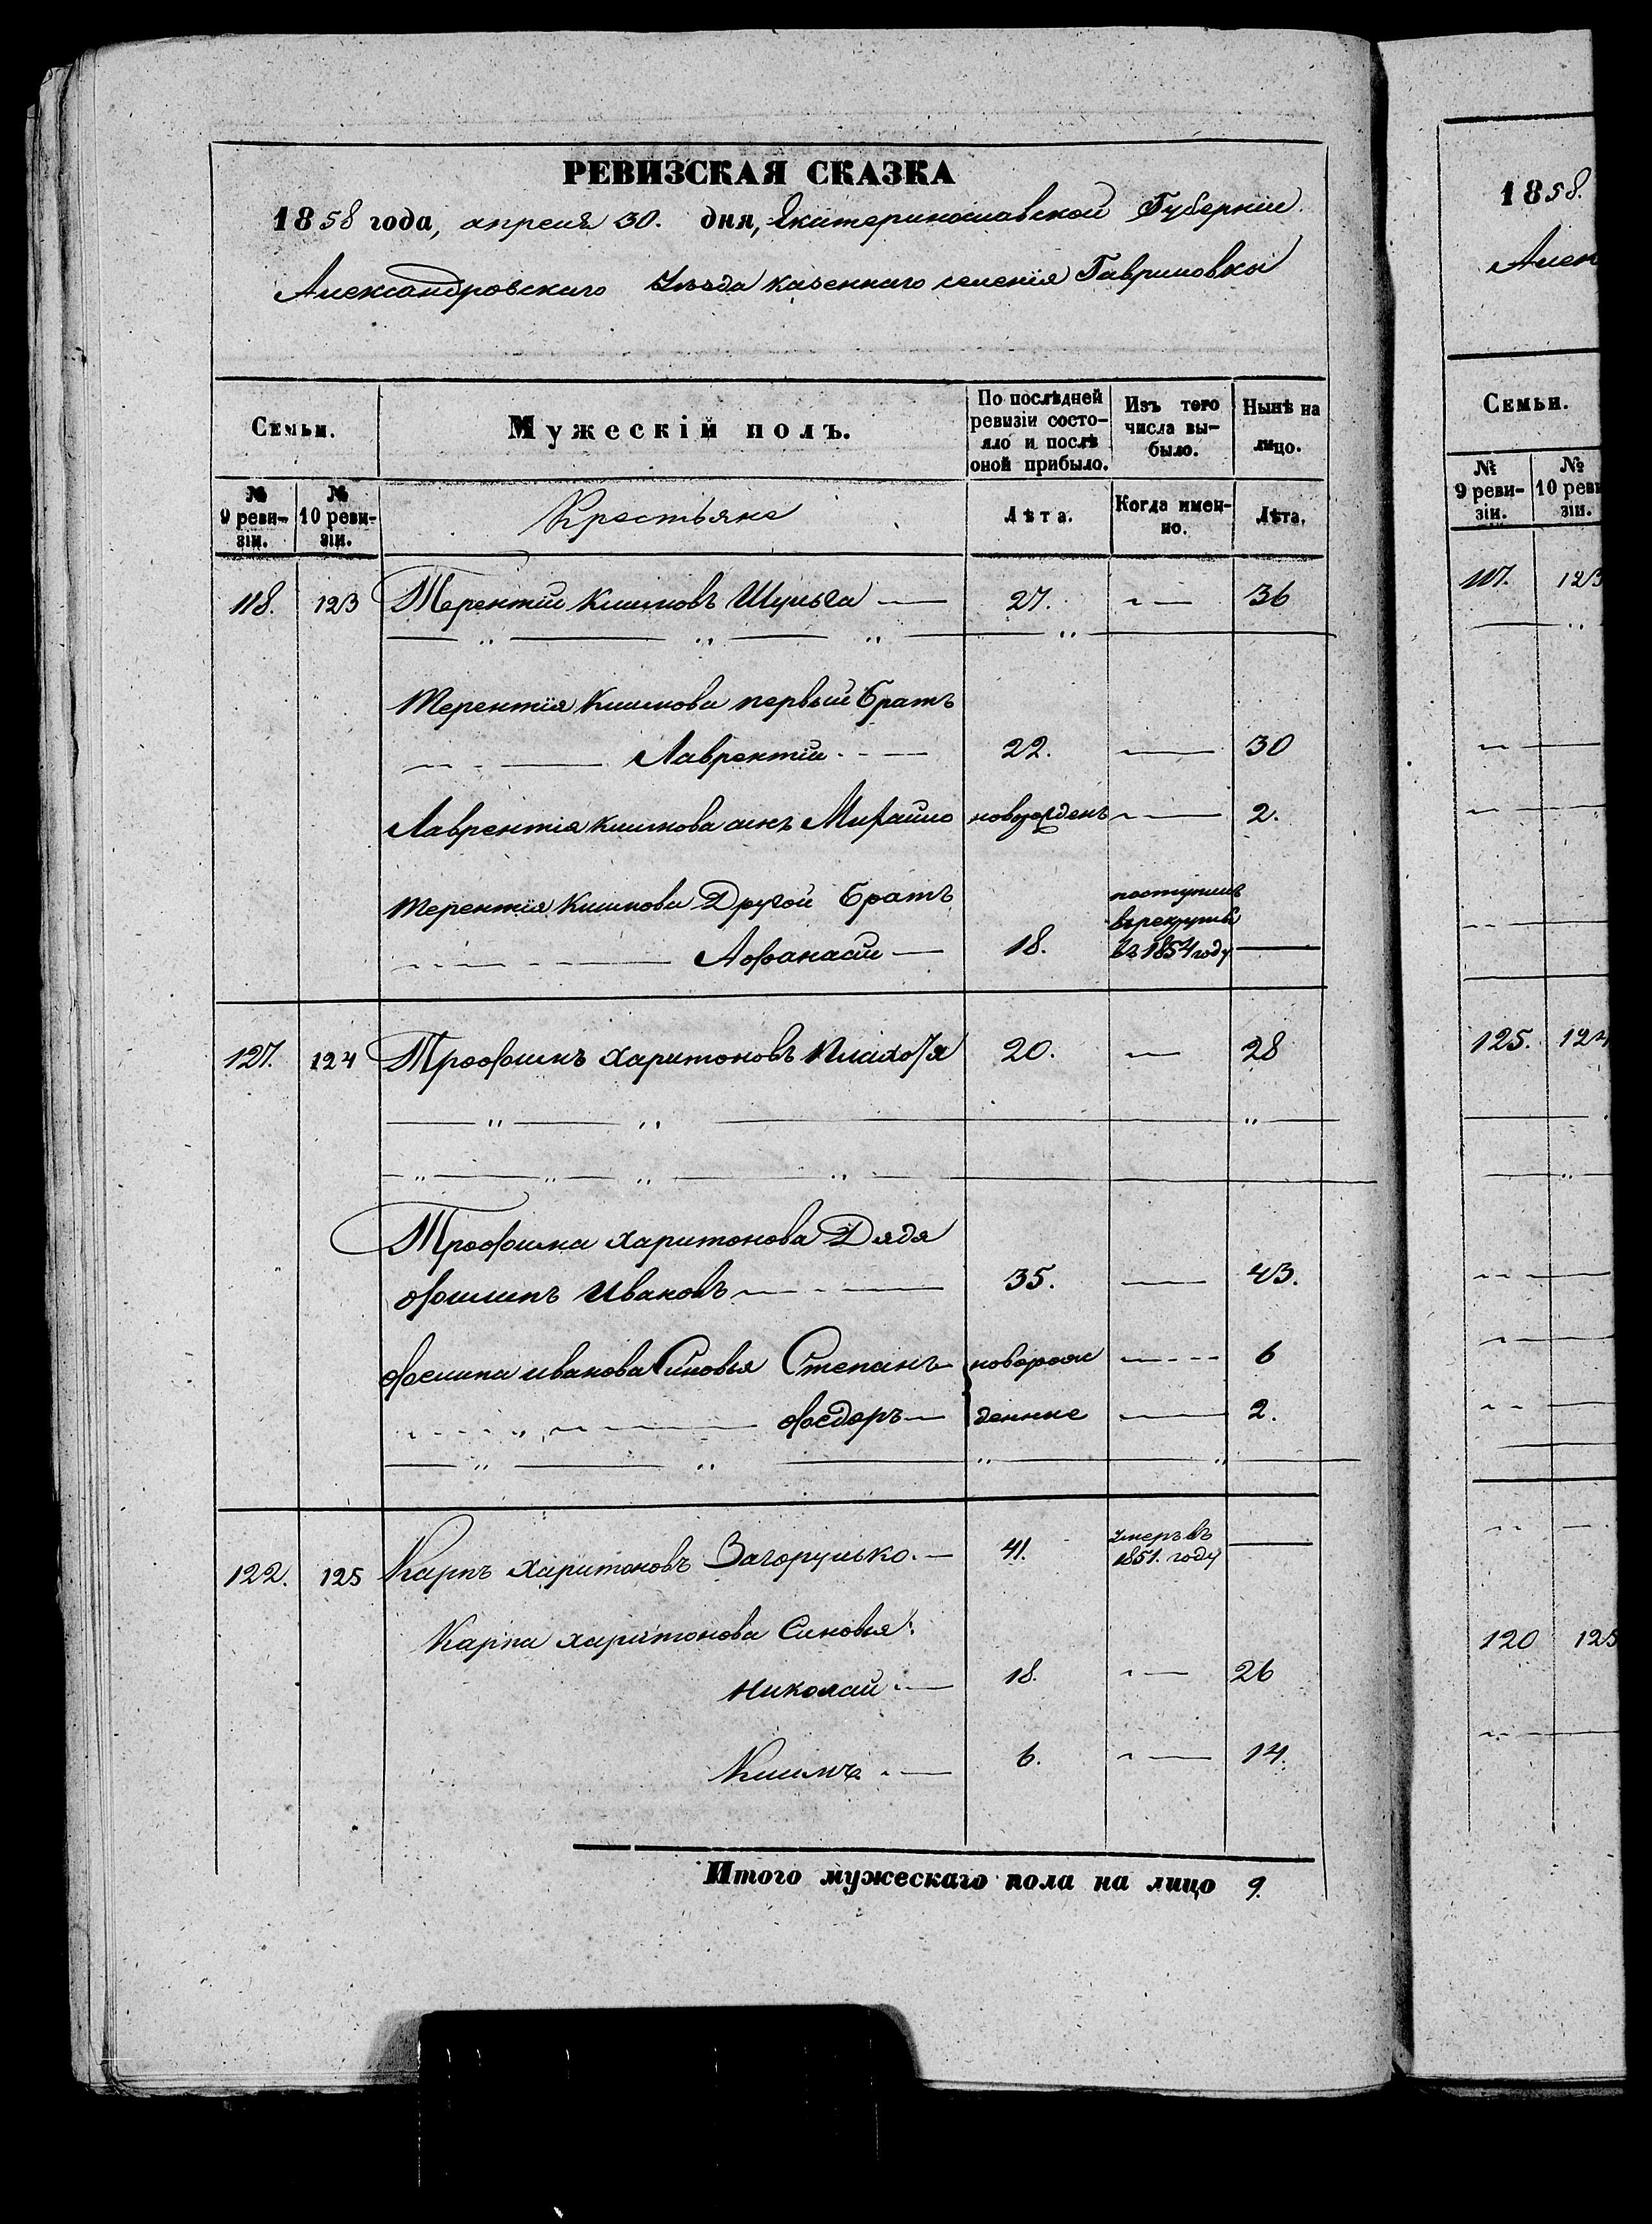 РЕВИЗСКАЯ СКАЗКА
1858 года, апреля 30. дня, Екатеринославской Губернии
Александровскаго Уезда казеннаго селенія Гавриловки
Семьи. Мужескій полъ. По послѣдней ревизіи состояло и послѣ оной прибыло. Изъ того числа выбыло. Нынѣ на лицо.
№ 9 ревизіи. № 10 ревизіи. Крестьяне Лѣта. Когда именно. Лѣта.
118. 123 Терентій Климовъ Шульга — 27. — 36
Терентія Климова первый братъ
Лаврентій — 22. — 30
Лаврентія Климова сынъ Михайло новорожденъ — 2.
Терентія Климова Другой братъ
Афанасій — 18. поступилъ в рекруты въ 1854 году —
127. 124 Трофимъ Харитоновъ Плахотя 20. — 28
Трофима Харитонова Дядя
Филипъ Ивановъ — 35. — 43.
Филипа Иванова Сыновья Степанъ новорож — 6
Федоръ — денные — 2.
122. 125 Карпъ Харитоновъ Загорулько. — 41. умеръ въ 1851. году —
Карпа Харитонова Сыновья:
Николай — 18. — 26
Климъ — 6. — 14.
Итого мужескаго пола на лицо 9.
1858.
Алек
Семьи.
№ 9 ревизіи. № 10 реви зіи.
117. 123
125. 124
120 125